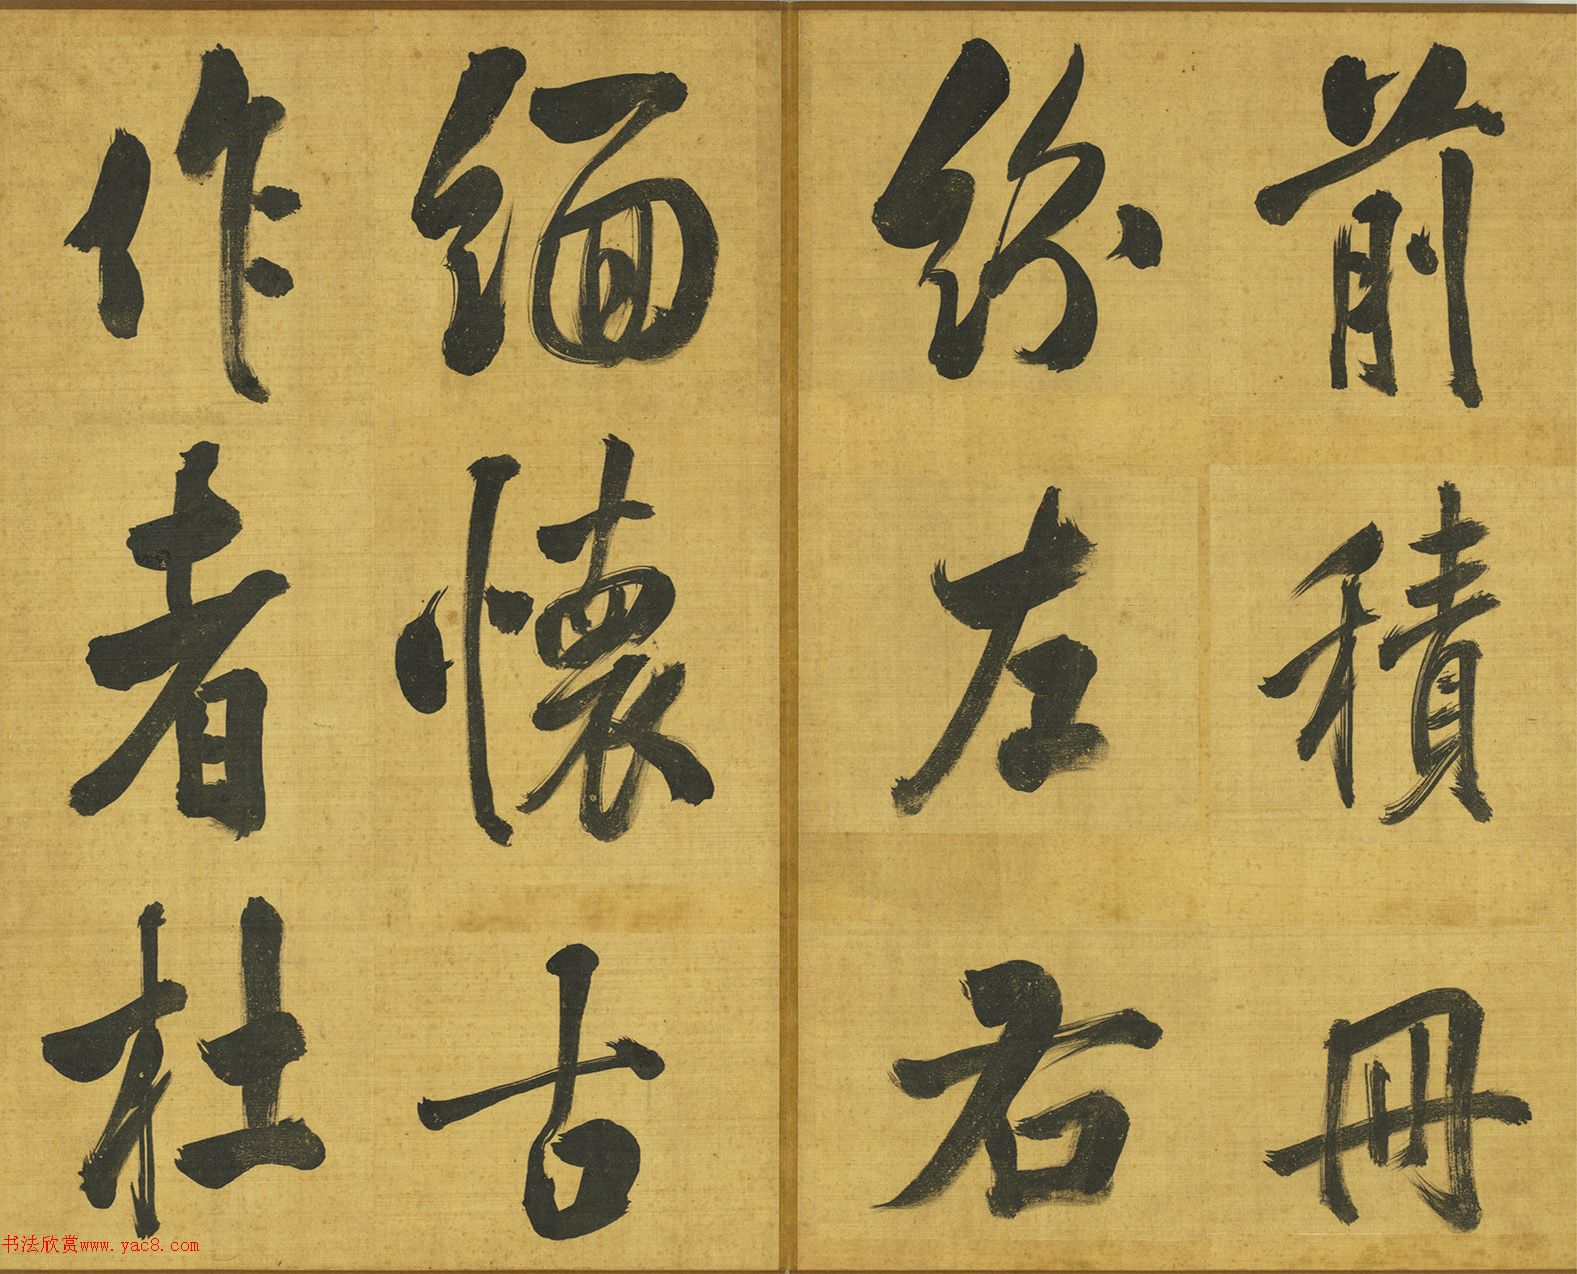 前積冊
紛左右
緬懷古
作者杜
书法欣赏www.yac8.com